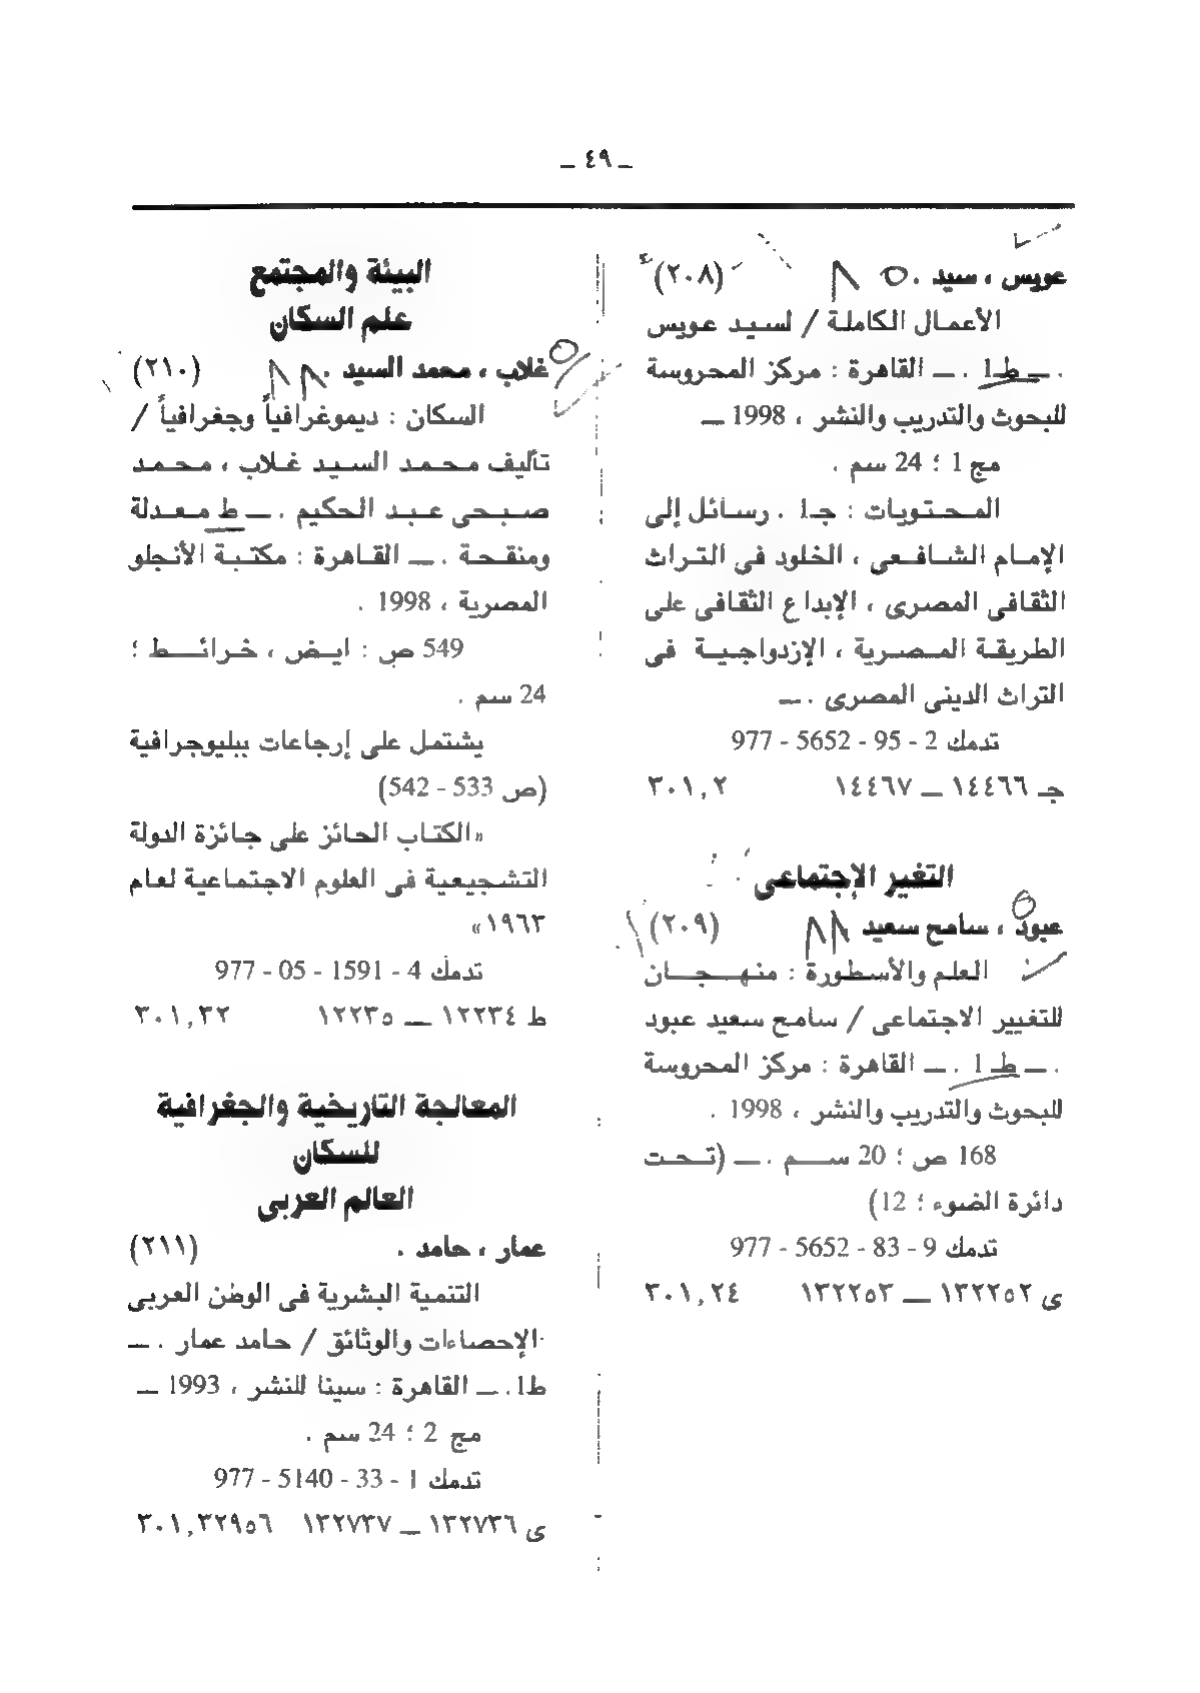 ـ ٤٩ ـ
عويس ، سيد . (٢٠٨)
الأعمال الكاملة / لسيد عويس
. ـ ط1 . ـ القاهرة : مركز المحروسة
للبحوث والتدريب والنشر ، 1998 ـ
مج 1 ؛ 24 سم .
المحتويات : جـ1 . رسائل إلى
الإمام الشافعى ، الخلود فى التراث
الثقافى المصرى ، الإبداع الثقافى على
الطريقة المصرية ، الإزدواجية فى
التراث الدينى المصرى . ـ
تدمك 2 - 95 - 5652 - 977
جـ ١٤٤٦٦ ـ ١٤٤٦٧ ٣٠١,٢
التغير الإجتماعى
عبود ، سامح سعيد (٢٠٩)
العلم والأسطورة : منهجان
للتغيير الاجتماعى / سامح سعيد عبود
. ـ ط 1 . ـ القاهرة : مركز المحروسة
للبحوث والتدريب والنشر ، 1998 .
168 ص ؛ 20 سم . ـ (تحت
دائرة الضوء ؛ 12)
تدمك 9 - 83 - 5652 - 977
ى ١٣٢٢٥٢ ـ ١٣٢٢٥٣ ٣٠١,٢٤
البيئة والمجتمع
علم السكان
غلاب ، محمد السيد . (٢١٠)
السكان : ديموغرافياً وجغرافياً /
تأليف محمد السيد غلاب ، محمد
صبحى عبد الحكيم . ـ ط معدلة
ومنقحة . ـ القاهرة : مكتبة الأنجلو
المصرية ، 1998 .
549 ص : ايض ، خرائط ؛
24 سم .
يشتمل على إرجاعات ببليوجرافية
(ص 533 - 542)
«الكتاب الحائز على جائزة الدولة
التشجيعية فى العلوم الاجتماعية لعام
١٩٦٣»
تدمك 4 - 1591 - 05 - 977
ط ١٢٢٣٤ ـ ١٢٢٣٥ ٣٠١,٣٢
المعالجة التاريخية والجغرافية
للسكان
العالم العربى
عمار ، حامد . (٢١١)
التنمية البشرية فى الوطن العربى
الإحصاءات والوثائق / حامد عمار . ـ
ط1. ـ القاهرة : سينا للنشر ، 1993 ـ
مج 2 ؛ 24 سم .
تدمك 1 - 33 - 5140 - 977
ى ١٢٢٧٣٦ ـ ١٢٢٧٣٧ ٣٠١,٣٢٩٥٦